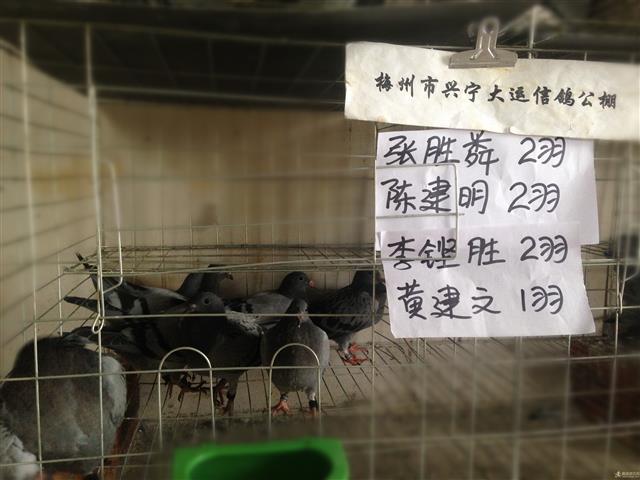 梅州市兴宁大运信鸽公棚
张胜舜 2羽
陈建明 2羽
李铿胜 2羽
黄建文 1羽